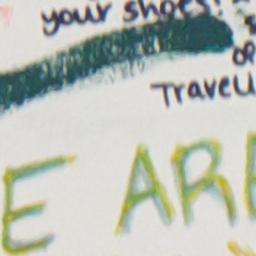 your shoes?
Travell
E ARE